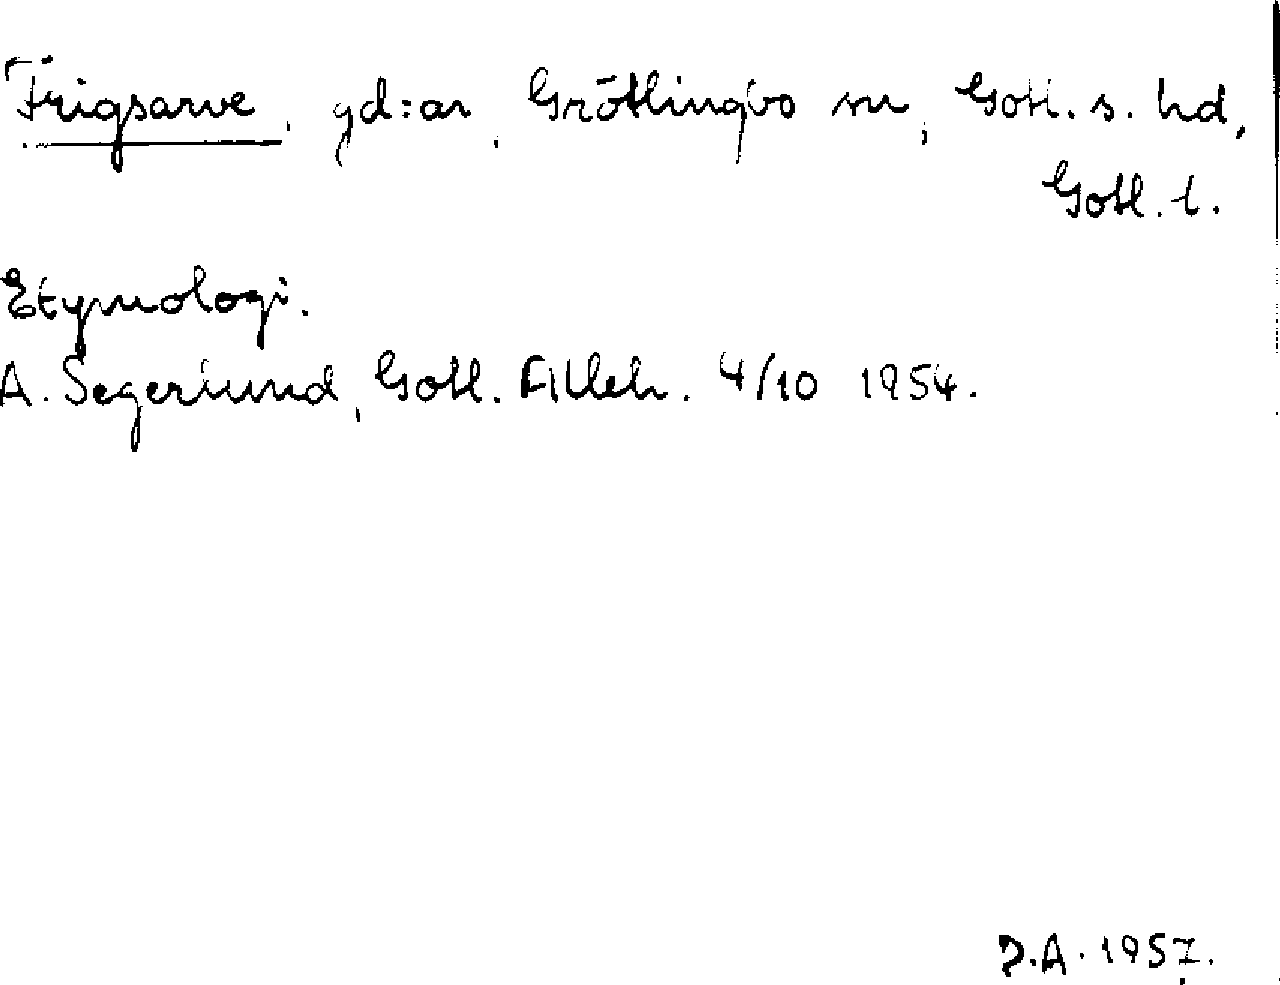 Frigsarve, gd:ar, Grötlingbo sn, Gotl. s. hd,
Gotl. l.
Etymologi.
A. Segerlund, Gotl. Alleh. 4/10 1954.
D.A. 1957.